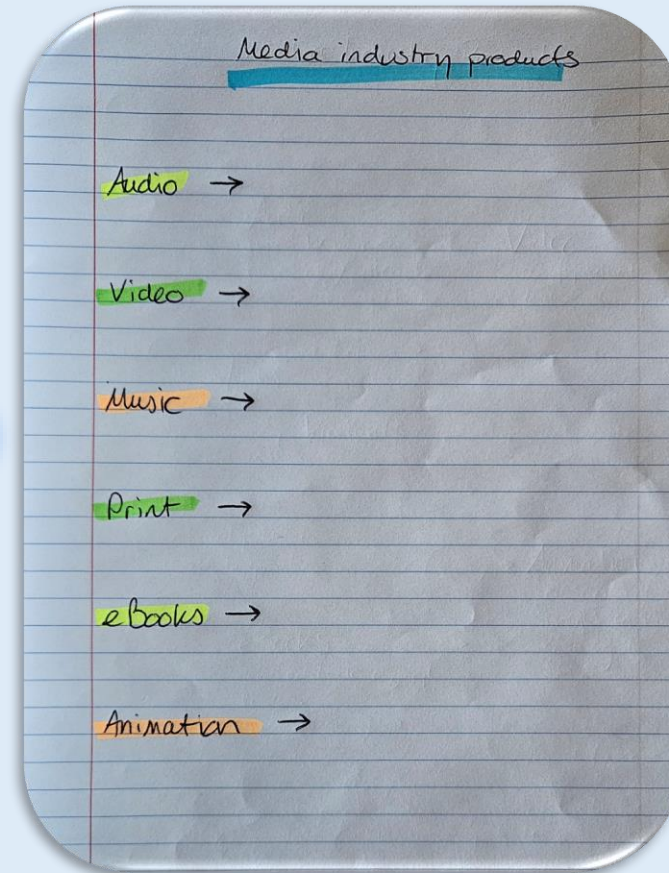 Media industry products
Audio →
Video →
Music →
Print →
eBooks →
Animation →